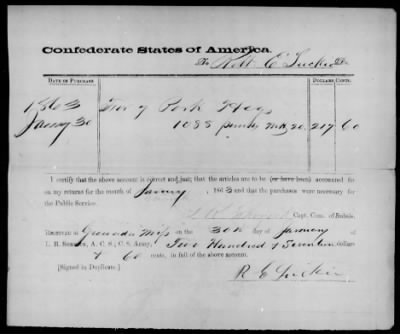 Confederate States of America.
To Robt E Tucker Dr.
DATE OF PURCHASE DOLLARS. CENTS.
1863 For 7 Pork Hogs
Jany 30 1088 pounds 20, 217 60
I certify that the above account is correct and just; that the articles are to be (or have been) accounted for
on my returns for the month of January, 1863 and that the purchases were necessary for
the Public Service.
Capt. Com. of Subsis.
RECEIVED at Grenada Miss on the 30th day of January of
A. C. S., C. S. Army, Two Hundred & Seventeen dollars
& 60 cents, in full of the above account.
[Signed in Duplicate.] R E Tucker